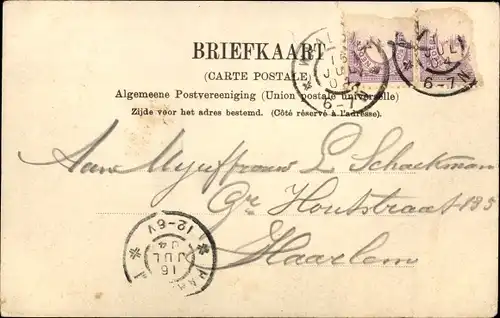 BRIEFKAART
(CARTE POSTALE)
Algemeene Postvereeniging (Union postale universelle)
Zijde voor het adres bestemd. (Côté réservé à l'adresse).
16
JUL
04
6-7N
JUL
04
6-7N
Aan Mejuffrouw L Schaekman
Gr Houtstraat 135
Haarlem
12-6V
16
JUL
04